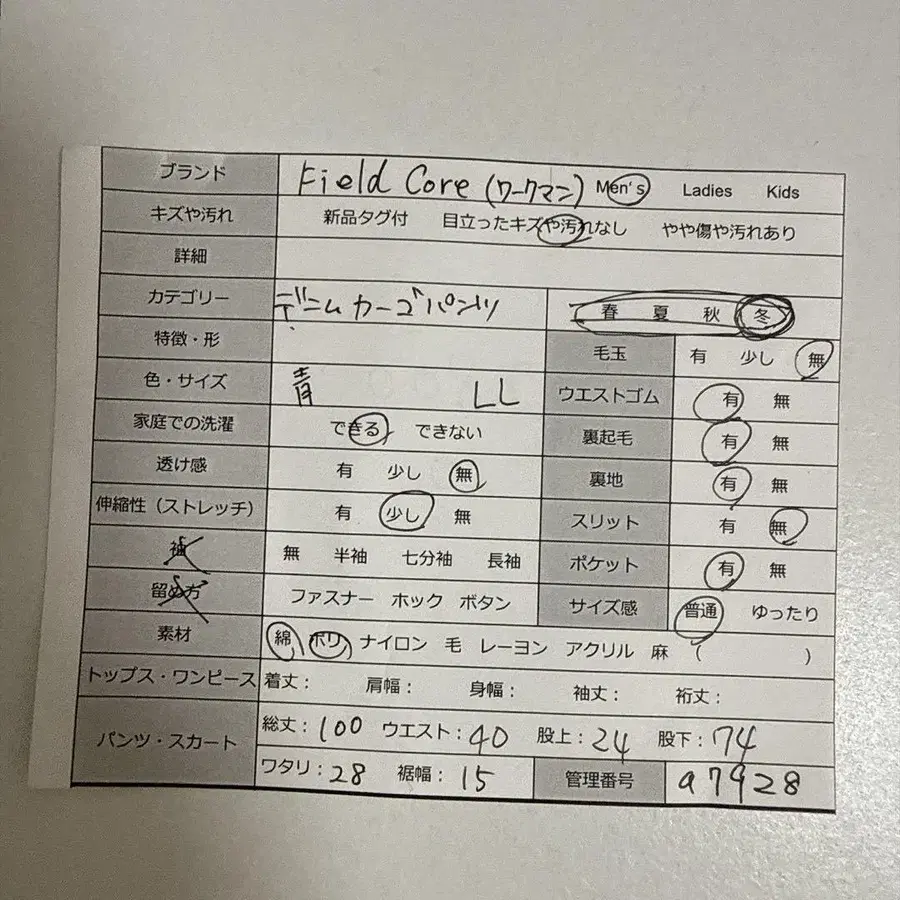 ブランド Field Core (ワークマン) Men's Ladies Kids
キズや汚れ 新品タグ付 目立ったキズや汚れなし やや傷や汚れあり
詳細
カテゴリー デニムカーゴパンツ 春 夏 秋 冬
特徴・形 毛玉 有 少し 無
色・サイズ 青 LL ウエストゴム 有 無
家庭での洗濯 できる できない 裏起毛 有 無
透け感 有 少し 無 裏地 有 無
伸縮性（ストレッチ） 有 少し 無 スリット 有 無
袖 無 半袖 七分袖 長袖 ポケット 有 無
留め方 ファスナー ホック ボタン サイズ感 普通 ゆったり
素材 綿 ポリ ナイロン 毛 レーヨン アクリル 麻 ( )
トップス・ワンピース 着丈： 肩幅： 身幅： 袖丈： 裄丈：
パンツ・スカート 総丈：100 ウエスト：40 股上：24 股下：74
ワタリ：28 裾幅：15 管理番号 a7928